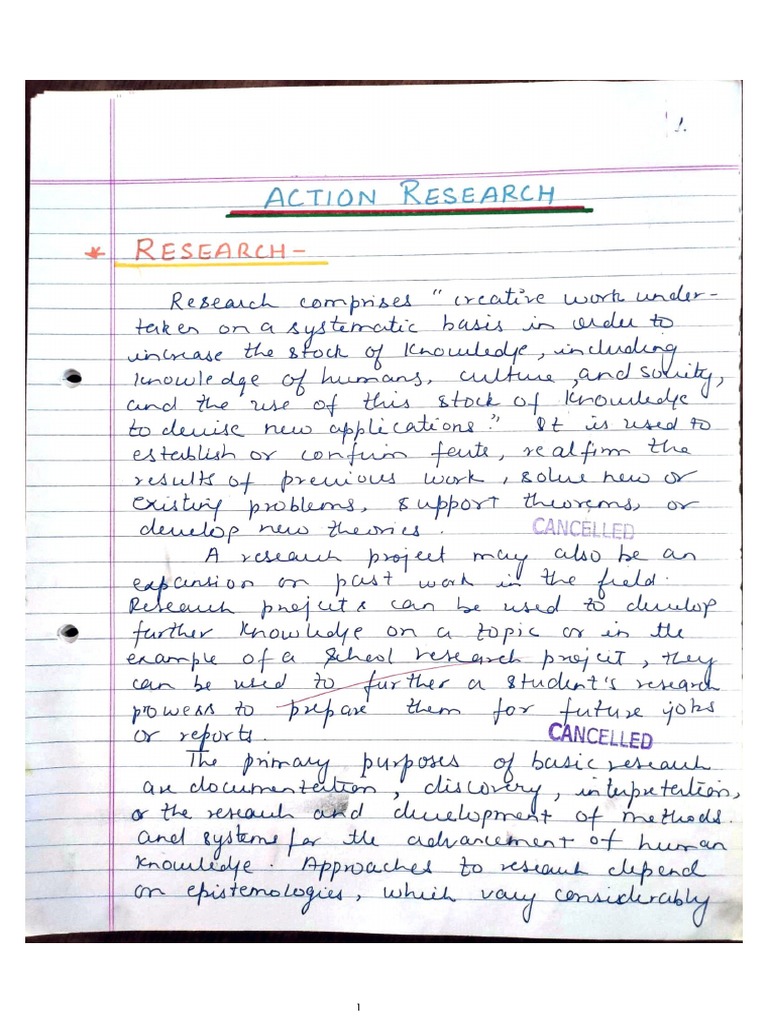 1.
ACTION RESEARCH
* RESEARCH -
Research comprises " creative work under-
taken on a systematic basis in order to
increase the stock of knowledge, including
knowledge of humans, culture, and society,
and the use of this stock of knowledge
to devise new applications." It is used to
establish or confirm facts, reaffirm the
results of previous work, solve new or
existing problems, support theorems, or
develop new theories.
CANCELLED
A research project may also be an
expansion on past work in the field.
Research projects can be used to develop
further knowledge on a topic or in the
example of a school research project, they
can be used to further a student's research
prowess to prepare them for future jobs
or reports.
CANCELLED
The primary purposes of basic research
are documentation, discovery, interpretation,
or the research and development of methods.
and systems for the advancement of human
knowledge. Approaches to research depend
on epistemologies, which vary considerably
1